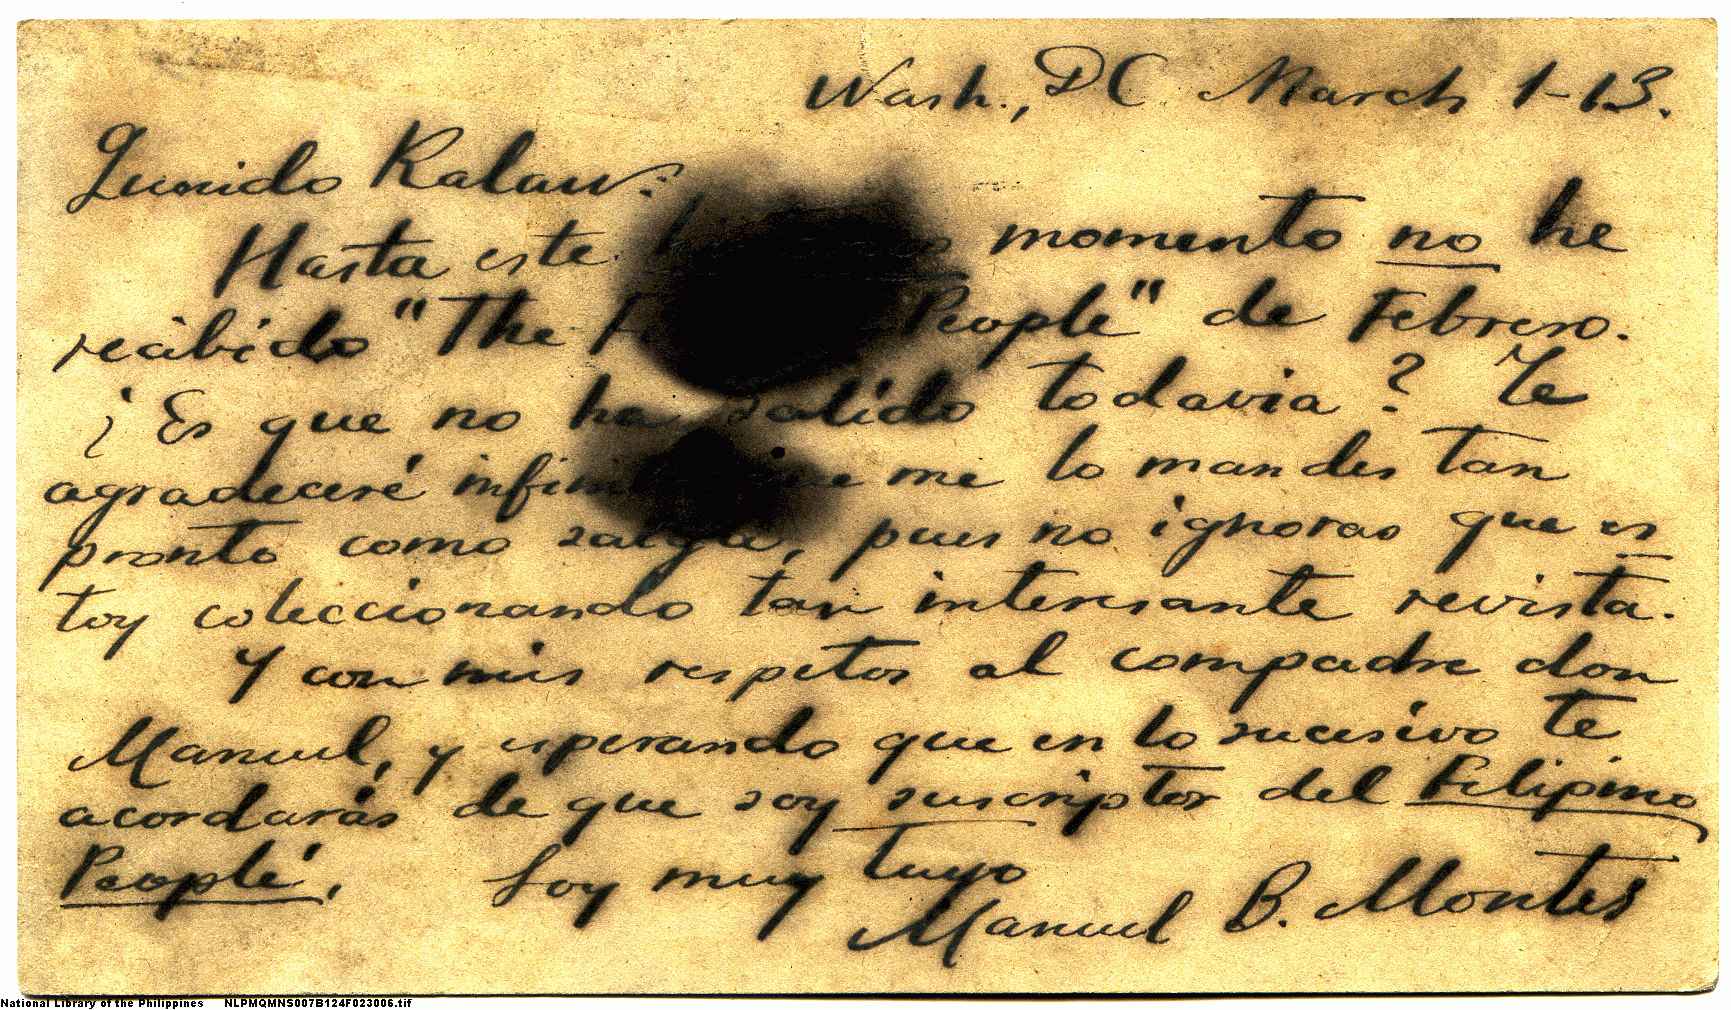 Wash., DC March 1-13.
Querido Kalaw:
Hasta este momento no he
recibido "The People" de Febrero.
¿Es que no ha salido todavia? Te
agradeceré me lo mandes tan
pronto como salga, pues no ignoras que es
toy coleccionando tan interesante revista.
Y con mis respetos al compadre don
Manuel, y esperando que en lo sucesivo te
acordarás de que soy suscriptor del Filipino
People, Soy muy tuyo
Manuel B. Montes
National Library of the Philippines NLPMQMNS007B124F023006.tif